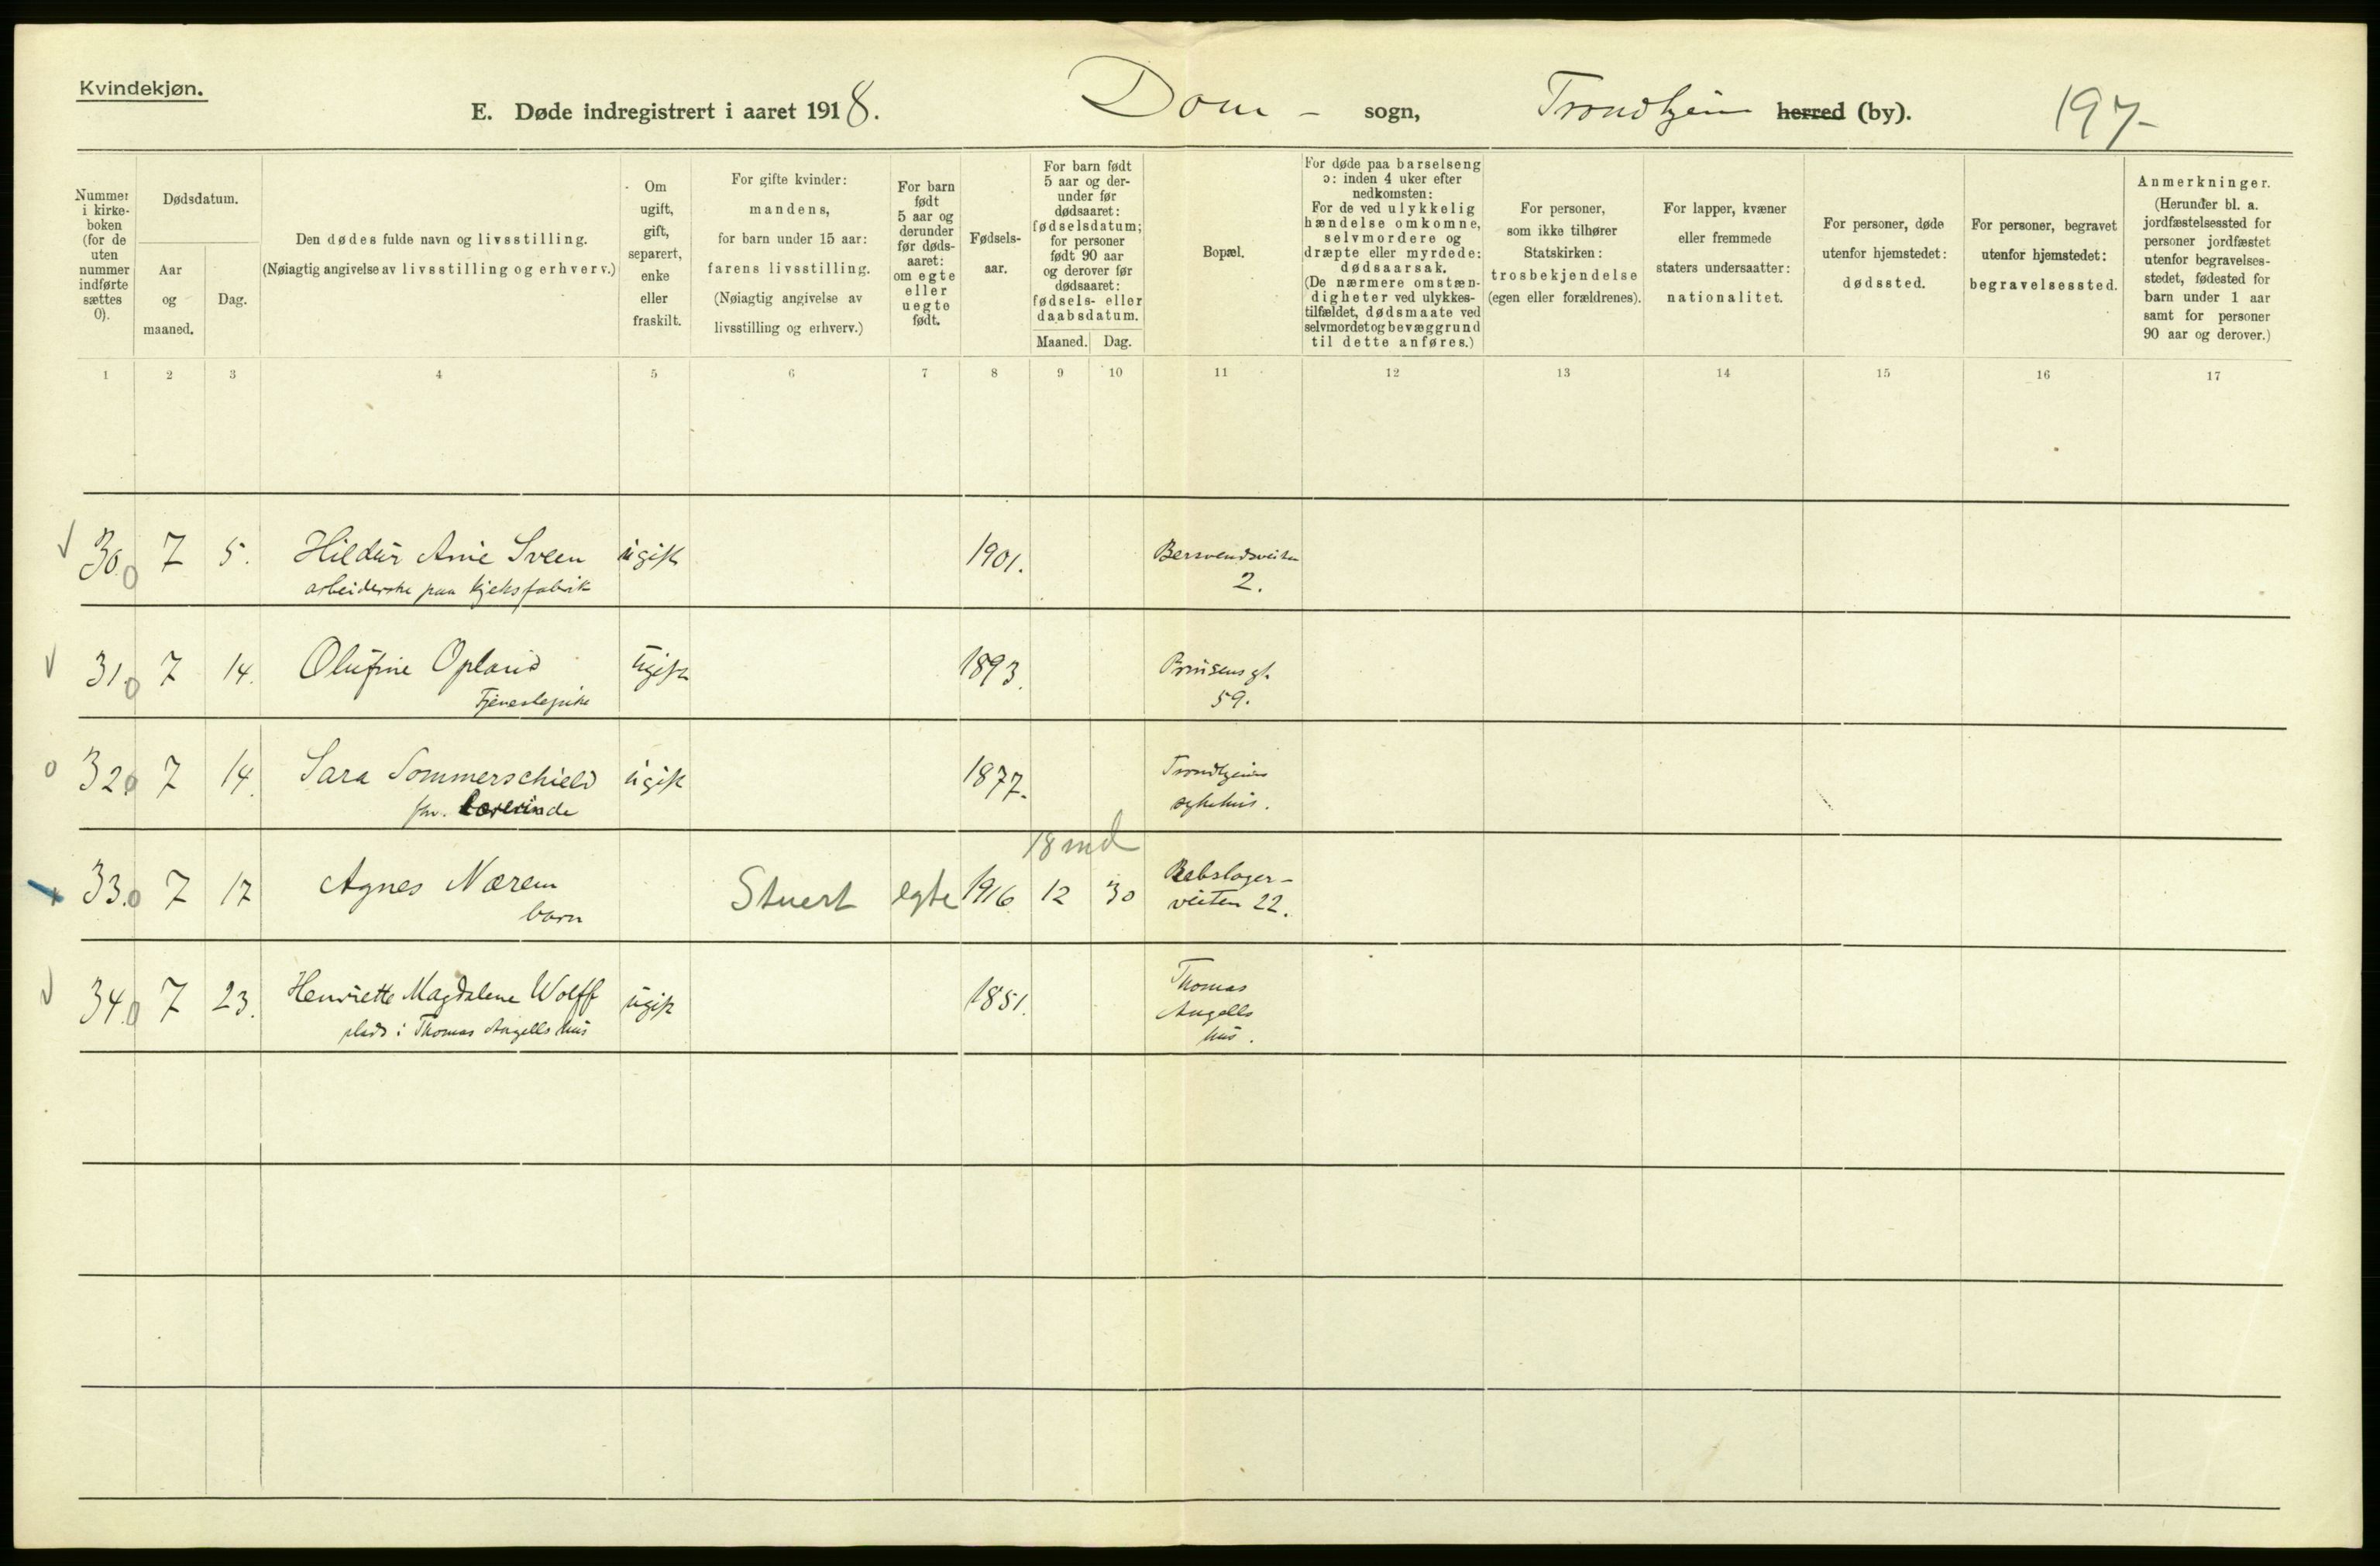 Kvindekjøn.
E. Døde indregistrert i aaret 1918. Dom - sogn, Trondhjem herred (by). 197-
Nummer i kirke-boken (for de uten nummer indførte sættes 0).
Dødsdatum.
Aar og maaned.
Dag.
Den dødes fulde navn og livsstilling.
(Nøiagtig angivelse av livsstilling og erhverv.)
Om ugift, gift, separert, enke eller fraskilt.
For gifte kvinder: mandens, for barn under 15 aar: farens livsstilling. (Nøiagtig angivelse av livsstilling og erhverv.)
For barn født 5 aar og derunder før døds-aaret: om egte eller uegte født.
Fødsels-aar.
For barn født 5 aar og der-under før dødsaaret: fødselsdatum; for personer født 90 aar og derover før dødsaaret: fødsels- eller daabsdatum.
Maaned. Dag.
Bopæl.
For døde paa barselseng ɔ: inden 4 uker efter nedkomsten: For de ved ulykkelig hændelse omkomne, selvmordere og dræpte eller myrdede: dødsaarsak. (De nærmere omstæn-digheter ved ulykkes-tilfældet, dødsmaate ved selvmordet og bevæggrund til dette anføres.)
For personer, som ikke tilhører Statskirken: trosbekjendelse (egen eller forældrenes).
For lapper, kvæner eller fremmede staters undersaatter: nationalitet.
For personer, døde utenfor hjemstedet: dødssted.
For personer, begravet utenfor hjemstedet: begravelsessted.
Anmerkninger. (Herunder bl. a. jordfæstelsessted for personer jordfæstet utenfor begravelses-stedet, fødested for barn under 1 aar samt for personer 90 aar og derover.)
1 2 3 4 5 6 7 8 9 10 11 12 13 14 15 16 17
30. 0 7 5. Hildur Anie Sveen ugift 1901. Bersvendsveiten
arbeiderske paa kjeksfabrik 2.
31. 0 7 14. Olufine Opland ugift 1893. Prinsens gt.
Tjenestepike 59.
32. 0 7 14. Sara Sommerschield ugift 1877. Trondhjems
fhv. Lærerinde sykehus.
18 md
33. 0 7 17 Agnes Nærem Stuert egte 1916 12 30 Rebslager-
barn veiten 22.
34. 0 7 23. Henriette Magdalene Wolff ugift 1851. Thomas
plads i Thomas Angells hus Angells
hus.